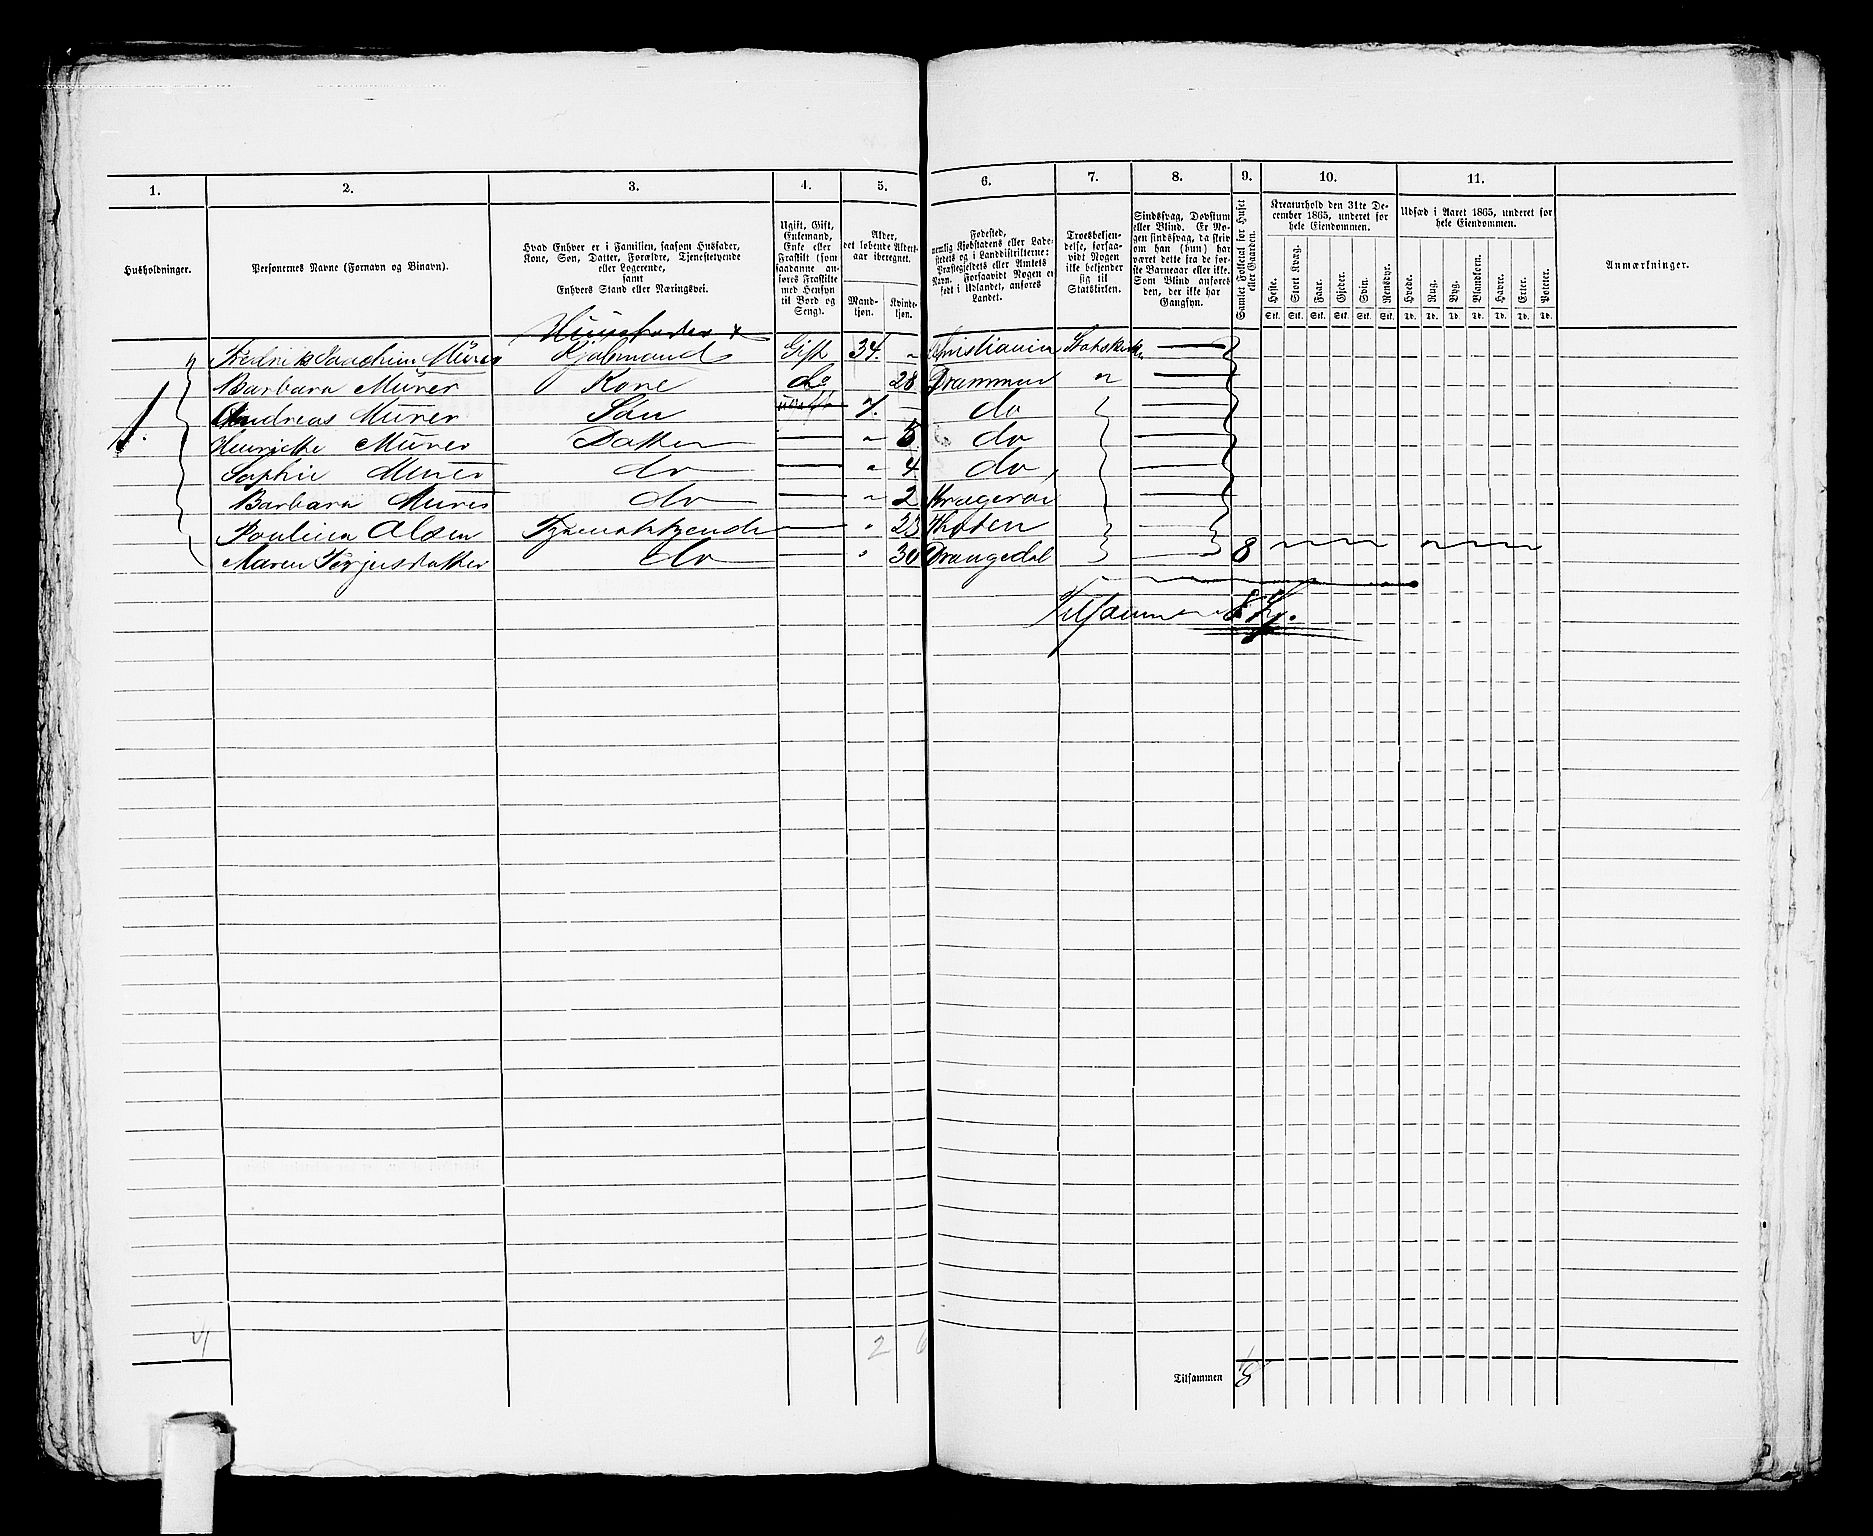 1. 2. 3. 4. 5. 6. 7. 8. 9. 10. 11.
Husholdninger.
Personernes Navne (Fornavn og Binavn).
Hvad Enhver er i Familien, saasom Husfader,
Kone, Søn, Datter, Forældre, Tjenestetyende
eller Logerende,
samt
Enhvers Stand eller Næringsvei.
Ugift, Gift,
Enkemand,
Enke eller
Fraskilt (som
saadanne an-
føres Fraskilte
med Hensyn
til Bord og
Seng).
Alder,
det løbende Alders-
aar iberegnet.
Mand-
kjøn.
Kvinde-
kjøn.
Fødested,
nemlig Kjøbstadens eller Lade-
stedets og i Landdistrikterne:
Præstegjeldets eller Amtets
Navn. Forsaavidt Nogen er
født i Udlandet, anføres
Landet.
Troesbekjen-
delse, forsaa-
vidt Nogen
ikke bekjender
sig til
Statskirken.
Sindssvag, Døvstum
eller Blind. Er No-
gen sindssvag, da skriv
om han (hun) har
været dette fra de før-
ste Barneaar eller ikke.
Som Blind anføres
den, der ikke har
Gangsyn.
Samlet Folketal for Huset
eller Gaarden.
Kreaturhold den 31te De-
cember 1865, underet for
hele Eiendommen.
Heste. Stort Kvæg. Faar. Gjeder. Svin. Rensdyr.
Stk. Stk. Stk. Stk. Stk. Stk.
Udsæd i Aaret 1865, underet for
hele Eiendommen.
Hvede. Rug. Byg. Blandkorn. Havre. Erter. Poteter.
Td. Td. Td. Td. Td. Td. Td.
Anmærkninger.
Huusfader
Fredrik Joachim Mürer Kjøbmand Gift 34. " Christiania Statskirken
Barbara Mürer Kone do 28 Drammen "
1. Andreas Mürer Søn Ugift 7. do
Henriette Mürer Datter " 5. do
Sophie Mürer do " 4. do
Barbara Mürer do " 2 Kragerø
Paulina Olsen Tjenestetyende " 23
Maren Terjesdatter do " 30 Drangedal 8
Tilsammen 8
2 6
Tilsammen 8